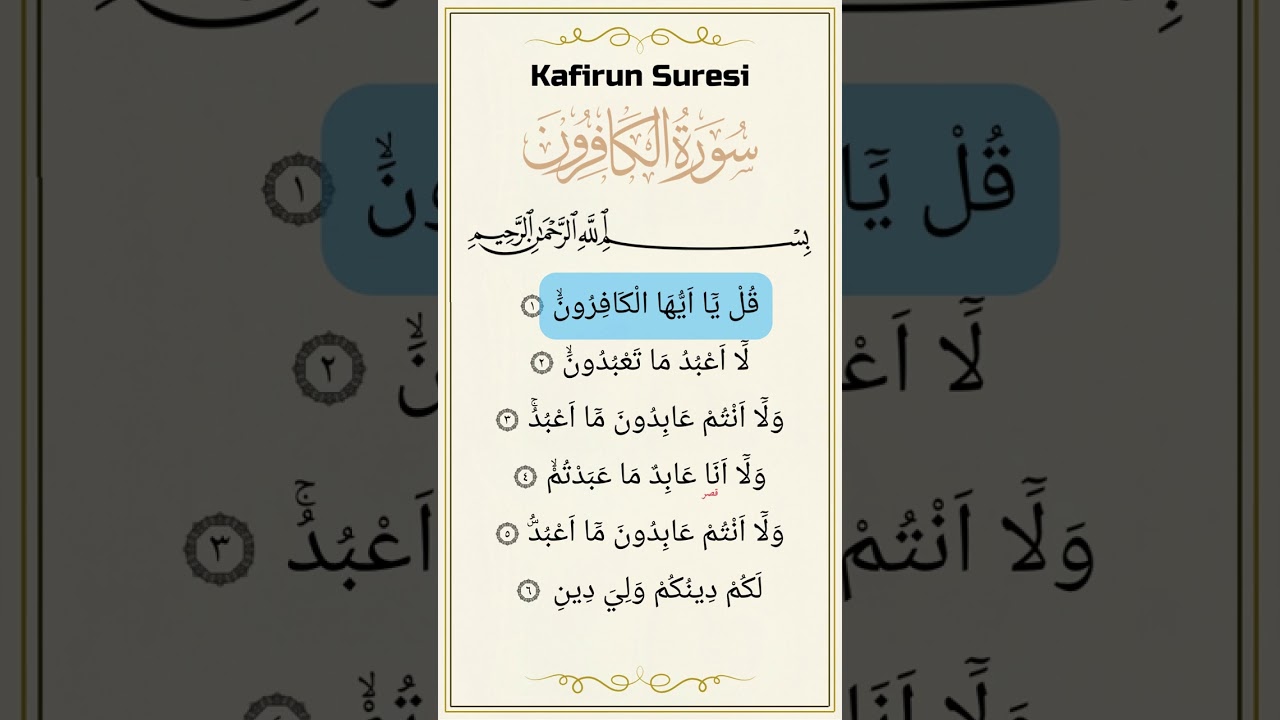 Kafirun Suresi
سُورَةُ الْكَافِرُونَ
بِسْمِ اللَّهِ الرَّحْمَٰنِ الرَّحِيمِ
قُلْ يَٓا اَيُّهَا الْكَافِرُونَۙ ١
لَٓا اَعْبُدُ مَا تَعْبُدُونَۙ ٢
وَلَٓا اَنْتُمْ عَابِدُونَ مَٓا اَعْبُدُۚ ٣
وَلَٓا اَنَا۬ عَابِدٌ مَا عَبَدْتُمْۙ ٤
قصر
وَلَٓا اَنْتُمْ عَابِدُونَ مَٓا اَعْبُدُۜ ٥
لَكُمْ دِينُكُمْ وَلِيَ دِينِ ٦